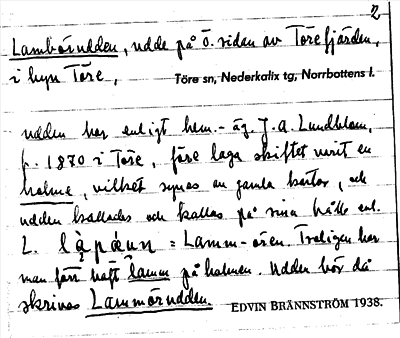 2
Lambörudden, udde på ö. sidan av Törefjärden,
i byn Töre,
Töre sn, Nederkalix tg, Norrbottens l.
udden har enligt hem.-äg. J. A. Lundblom,
f. 1870 i Töre, före laga skiftet varit en
holme, vilket synes av gamla kartor, och
udden kallades och kallas på sina håll enl.
L. = Lamm-ören. Troligen har
man förr haft lamm på holmen. Udden bör då
skrivas Lammörudden.
EDVIN BRÄNNSTRÖM 1938.